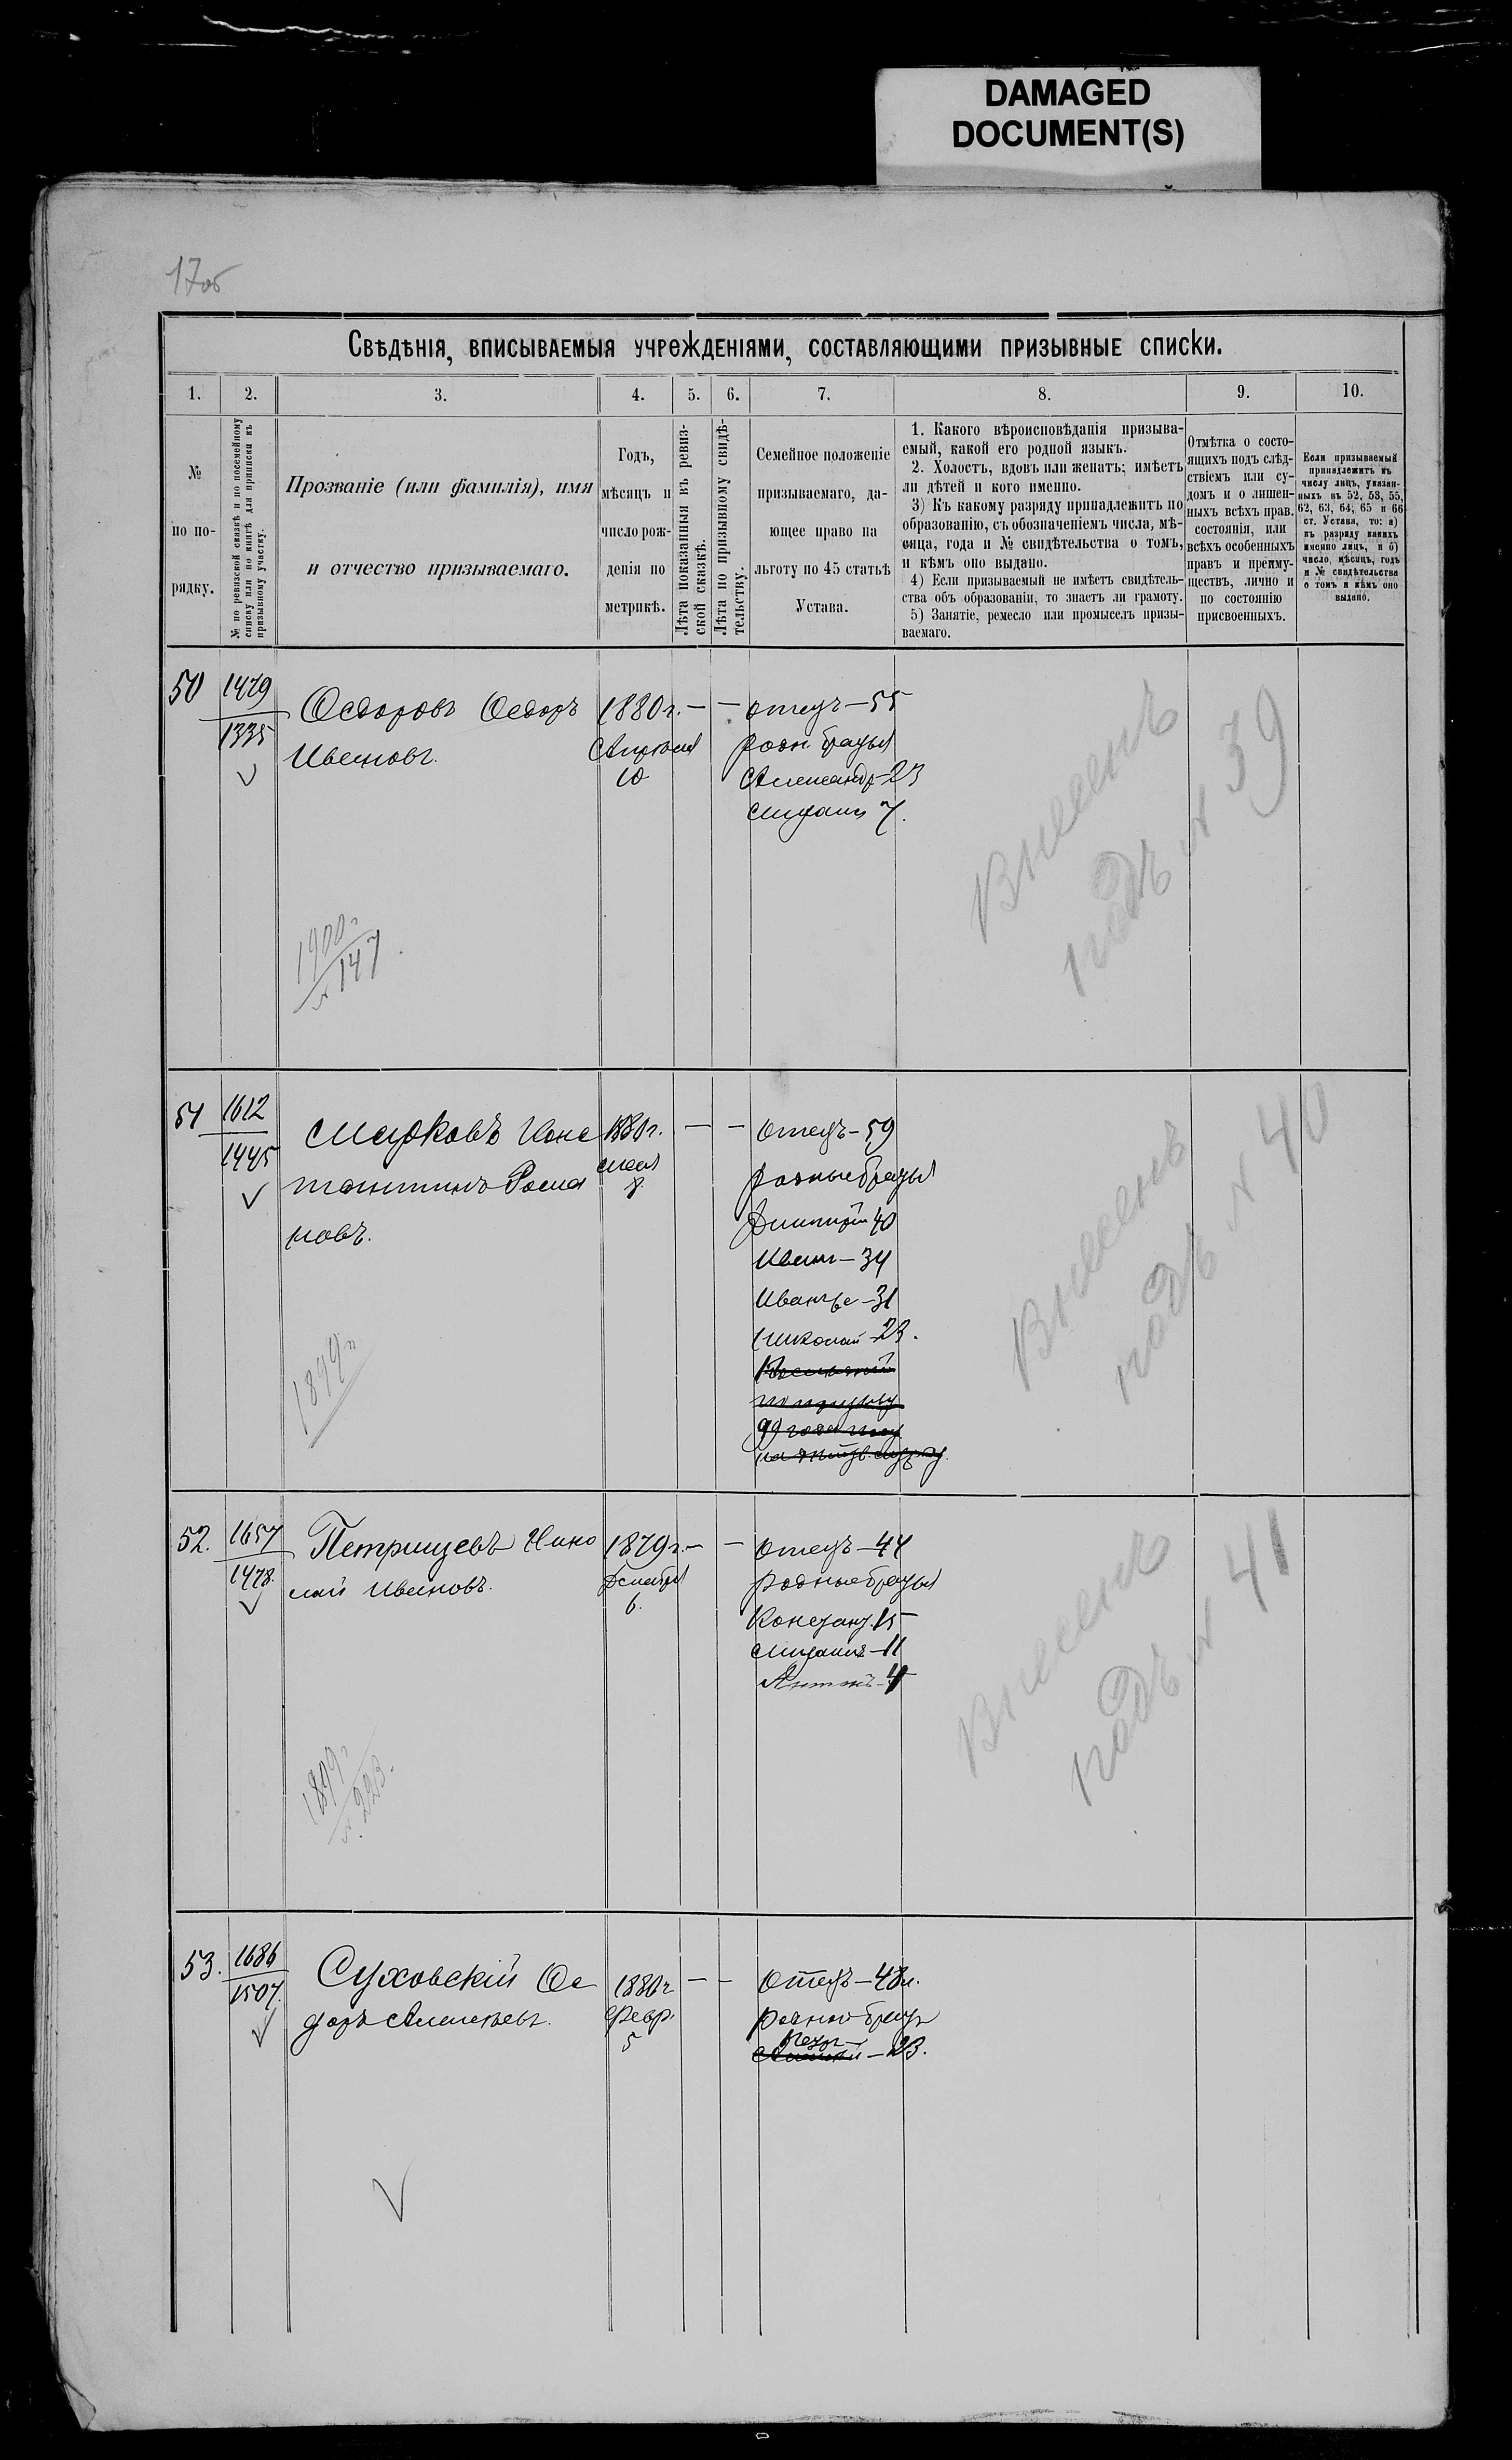 DAMAGED
DOCUMENT(S)
17об
Свѣдѣнія, вписываемыя учрежденіями, составляющими призывные списки.
1. 2. 3. 4. 5. 6. 7. 8. 9. 10.
№
по по-
рядку.
№ по ревизской сказкѣ и по посемейному
списку или по книгѣ для приписки къ
призывному участку.
Прозваніе (или фамилія), имя
и отчество призываемаго.
Годъ,
мѣсяцъ и
число рож-
денія по
метрикѣ.
Лѣта показанныя въ ревиз-
ской сказкѣ.
Лѣта по призывному свидѣ-
тельству.
Семейное положеніе
призываемаго, да-
ющее право на
льготу по 45 статьѣ
Устава.
1. Какого вѣроисповѣданія призыва-
емый, какой его родной языкъ.
2. Холостъ, вдовъ или женатъ; имѣетъ
ли дѣтей и кого именно.
3) Къ какому разряду принадлежитъ по
образованію, съ обозначеніемъ числа, мѣ-
сяца, года и № свидѣтельства о томъ,
и кѣмъ оно выдано.
4) Если призываемый не имѣетъ свидѣтель-
ства объ образованіи, то знаетъ ли грамоту.
5) Занятіе, ремесло или промыселъ призы-
ваемаго.
Отмѣтка о состо-
ящихъ подъ слѣд-
ствіемъ или су-
домъ и о лишен-
ныхъ всѣхъ прав.
состоянія, или
всѣхъ особенныхъ
правъ и преиму-
ществъ, лично и
по состоянію
присвоенныхъ.
Если призываемый
принадлежитъ къ
числу лицъ, указан-
ныхъ въ 52, 53, 55,
62, 63, 64, 65 и 66
ст. Устава, то: а)
къ разряду какихъ
именно лицъ, и б)
число, мѣсяцъ, годъ
и № свидѣтельства
о томъ и кѣмъ оно
выдано.
50
1479
1335
Ѳедоровъ Ѳедоръ
Ивановъ.
1880 г.
Апрѣля
10
— —
отецъ — 55
родн братья
Александр — 23
Михаил 7.
Внесенъ
подъ № 39
1900 г
№ 147
51
1612
1445
Марковъ Конс
тантинъ Рома
новъ.
1880 г.
мая
8.
— —
отецъ — 59
родные братья
Дмитрій 40
Иванъ — 34
Иванъ 2 — 31
Николай — 23.
Внесенъ
подъ № 40
1899 г
52.
1657
1478.
Петрищевъ Нико
лай Ивановъ.
1879 г.
Декабря
6.
— —
отецъ — 44
родные братья
Констант. 15
Михаилъ — 11
Антонъ — 4
Внесенъ
подъ № 41
1899 г
№. 223.
53.
1686
1507.
Суховскій Ѳе
доръ Алексѣевъ.
1880 г
февр.
5
— —
отецъ — 48 л.
родной братъ
Петръ — 23.